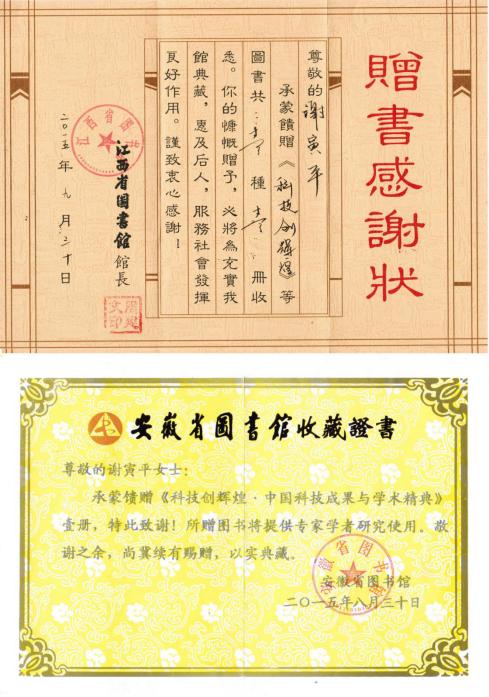 贈書感謝狀
尊敬的谢寅平
承蒙饋贈《科技创辉煌》等
圖書共壹種壹冊收
悉。你的慷慨贈予，必將為充實我
館典藏，惠及后人，服務社會發揮
良好作用。謹致衷心感謝！
江西省图書館 館長
二〇一五年九月三十日
江西省图
安徽省圖書館收藏證書
尊敬的谢寅平女士：
承蒙馈赠《科技创辉煌·中国科技成果与学术精典》
壹册，特此致谢！所赠图书将提供专家学者研究使用。敬
谢之余，尚冀续有赐赠，以实典藏。
安徽省图书馆
二〇一五年八月三十日
安徽省图书馆